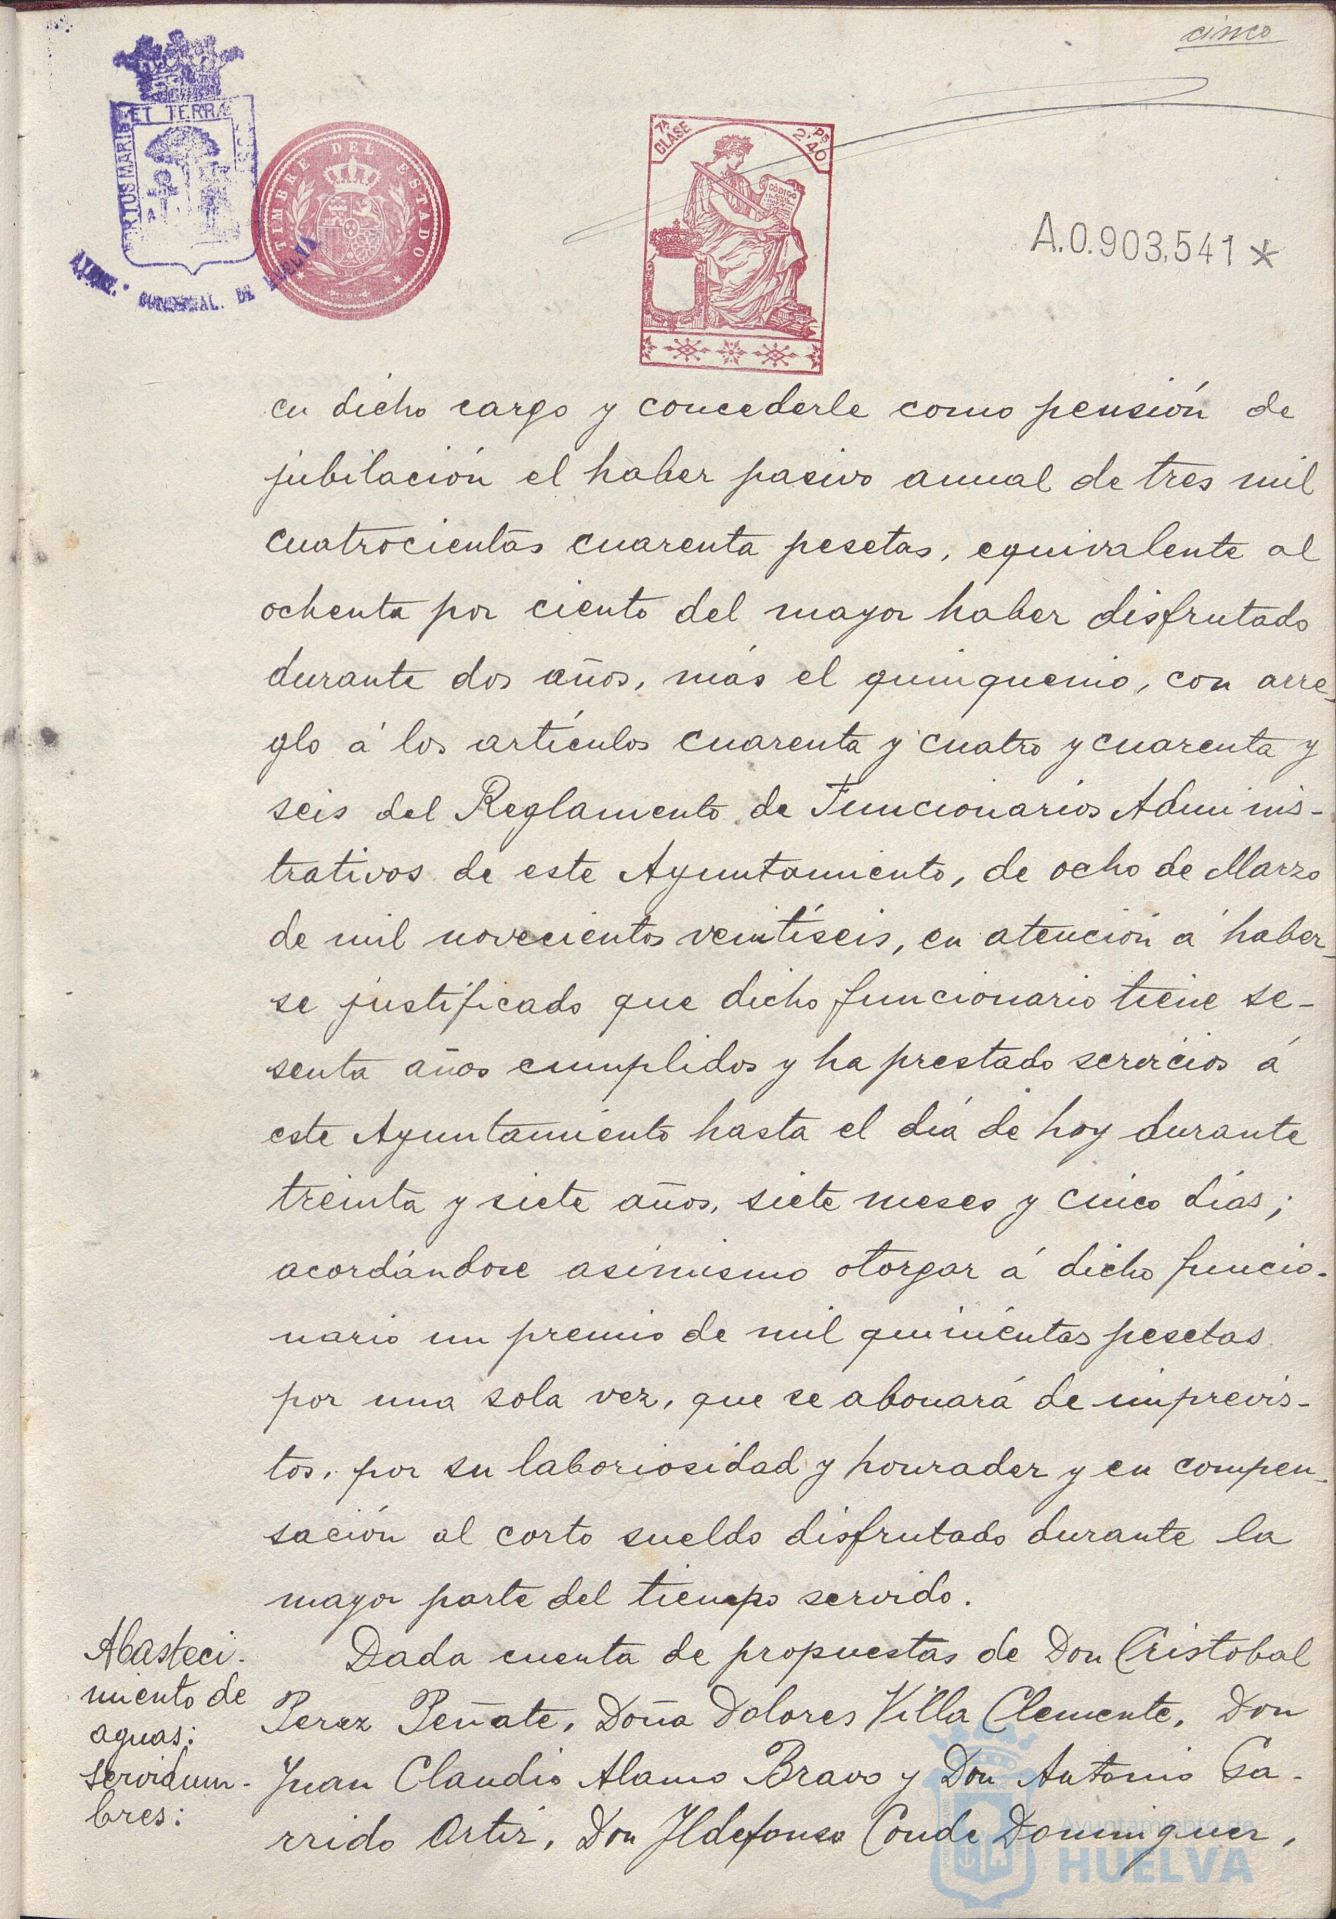 cinco
PORTUS MARIS ET TERRAE CUS
AYUNT. CONSTNAL. DE HUELVA
TIMBRE DEL ESTADO
7ª CLASE
2'40 Ps
CÓDIGO
A.0.903,541 *
en dicho cargo y concederle como pensión de
jubilación el haber pasivo anual de tres mil
cuatrocientas cuarenta pesetas, equivalente al
ochenta por ciento del mayor haber disfrutado
durante dos años, más el quinquenio, con arre-
glo á los artículos cuarenta y cuatro y cuarenta y
seis del Reglamento de Funcionarios Adminis-
trativos de este Ayuntamiento, de ocho de Marzo
de mil novecientos veintiseis, en atención á haber-
se justificado que dicho funcionario tiene se-
senta años cumplidos y ha prestado servicios á
este Ayuntamiento hasta el día de hoy durante
treinta y siete años, siete meses y cinco días;
acordándose asimismo otorgar á dicho funcio-
nario un premio de mil quinientas pesetas
por una sola vez, que se abonará de imprevis-
tos, por su laboriosidad y honradez y en compen-
sación al corto sueldo disfrutado durante la
mayor parte del tiempo servido.
Abasteci-
miento de
aguas:
servidum-
bres:
Dada cuenta de propuestas de Don Cristobal
Perez Peñate, Doña Dolores Villa Clemente, Don
Juan Claudio Alamo Bravo y Don Antonio Ga-
rrido Ortiz, Don Ildefonso Conde Dominguez,
Ayuntamiento de
HUELVA